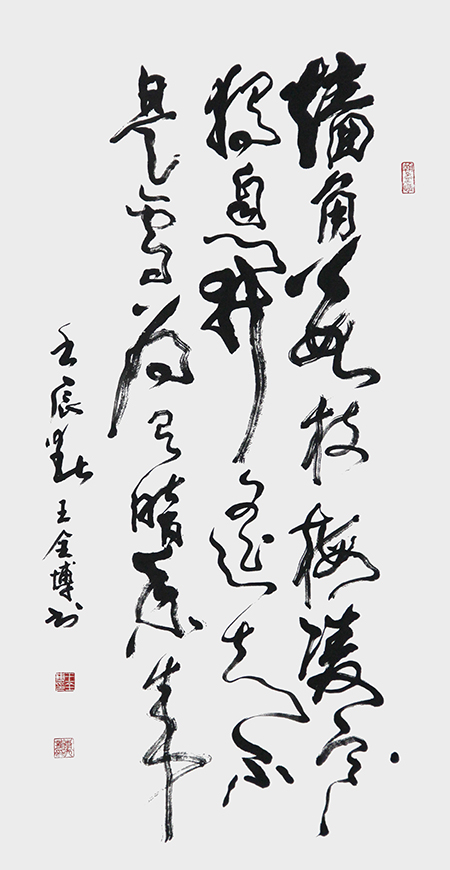 墙角数枝梅凌寒
独自开遥知不
是雪为有暗香来
壬辰王金博书